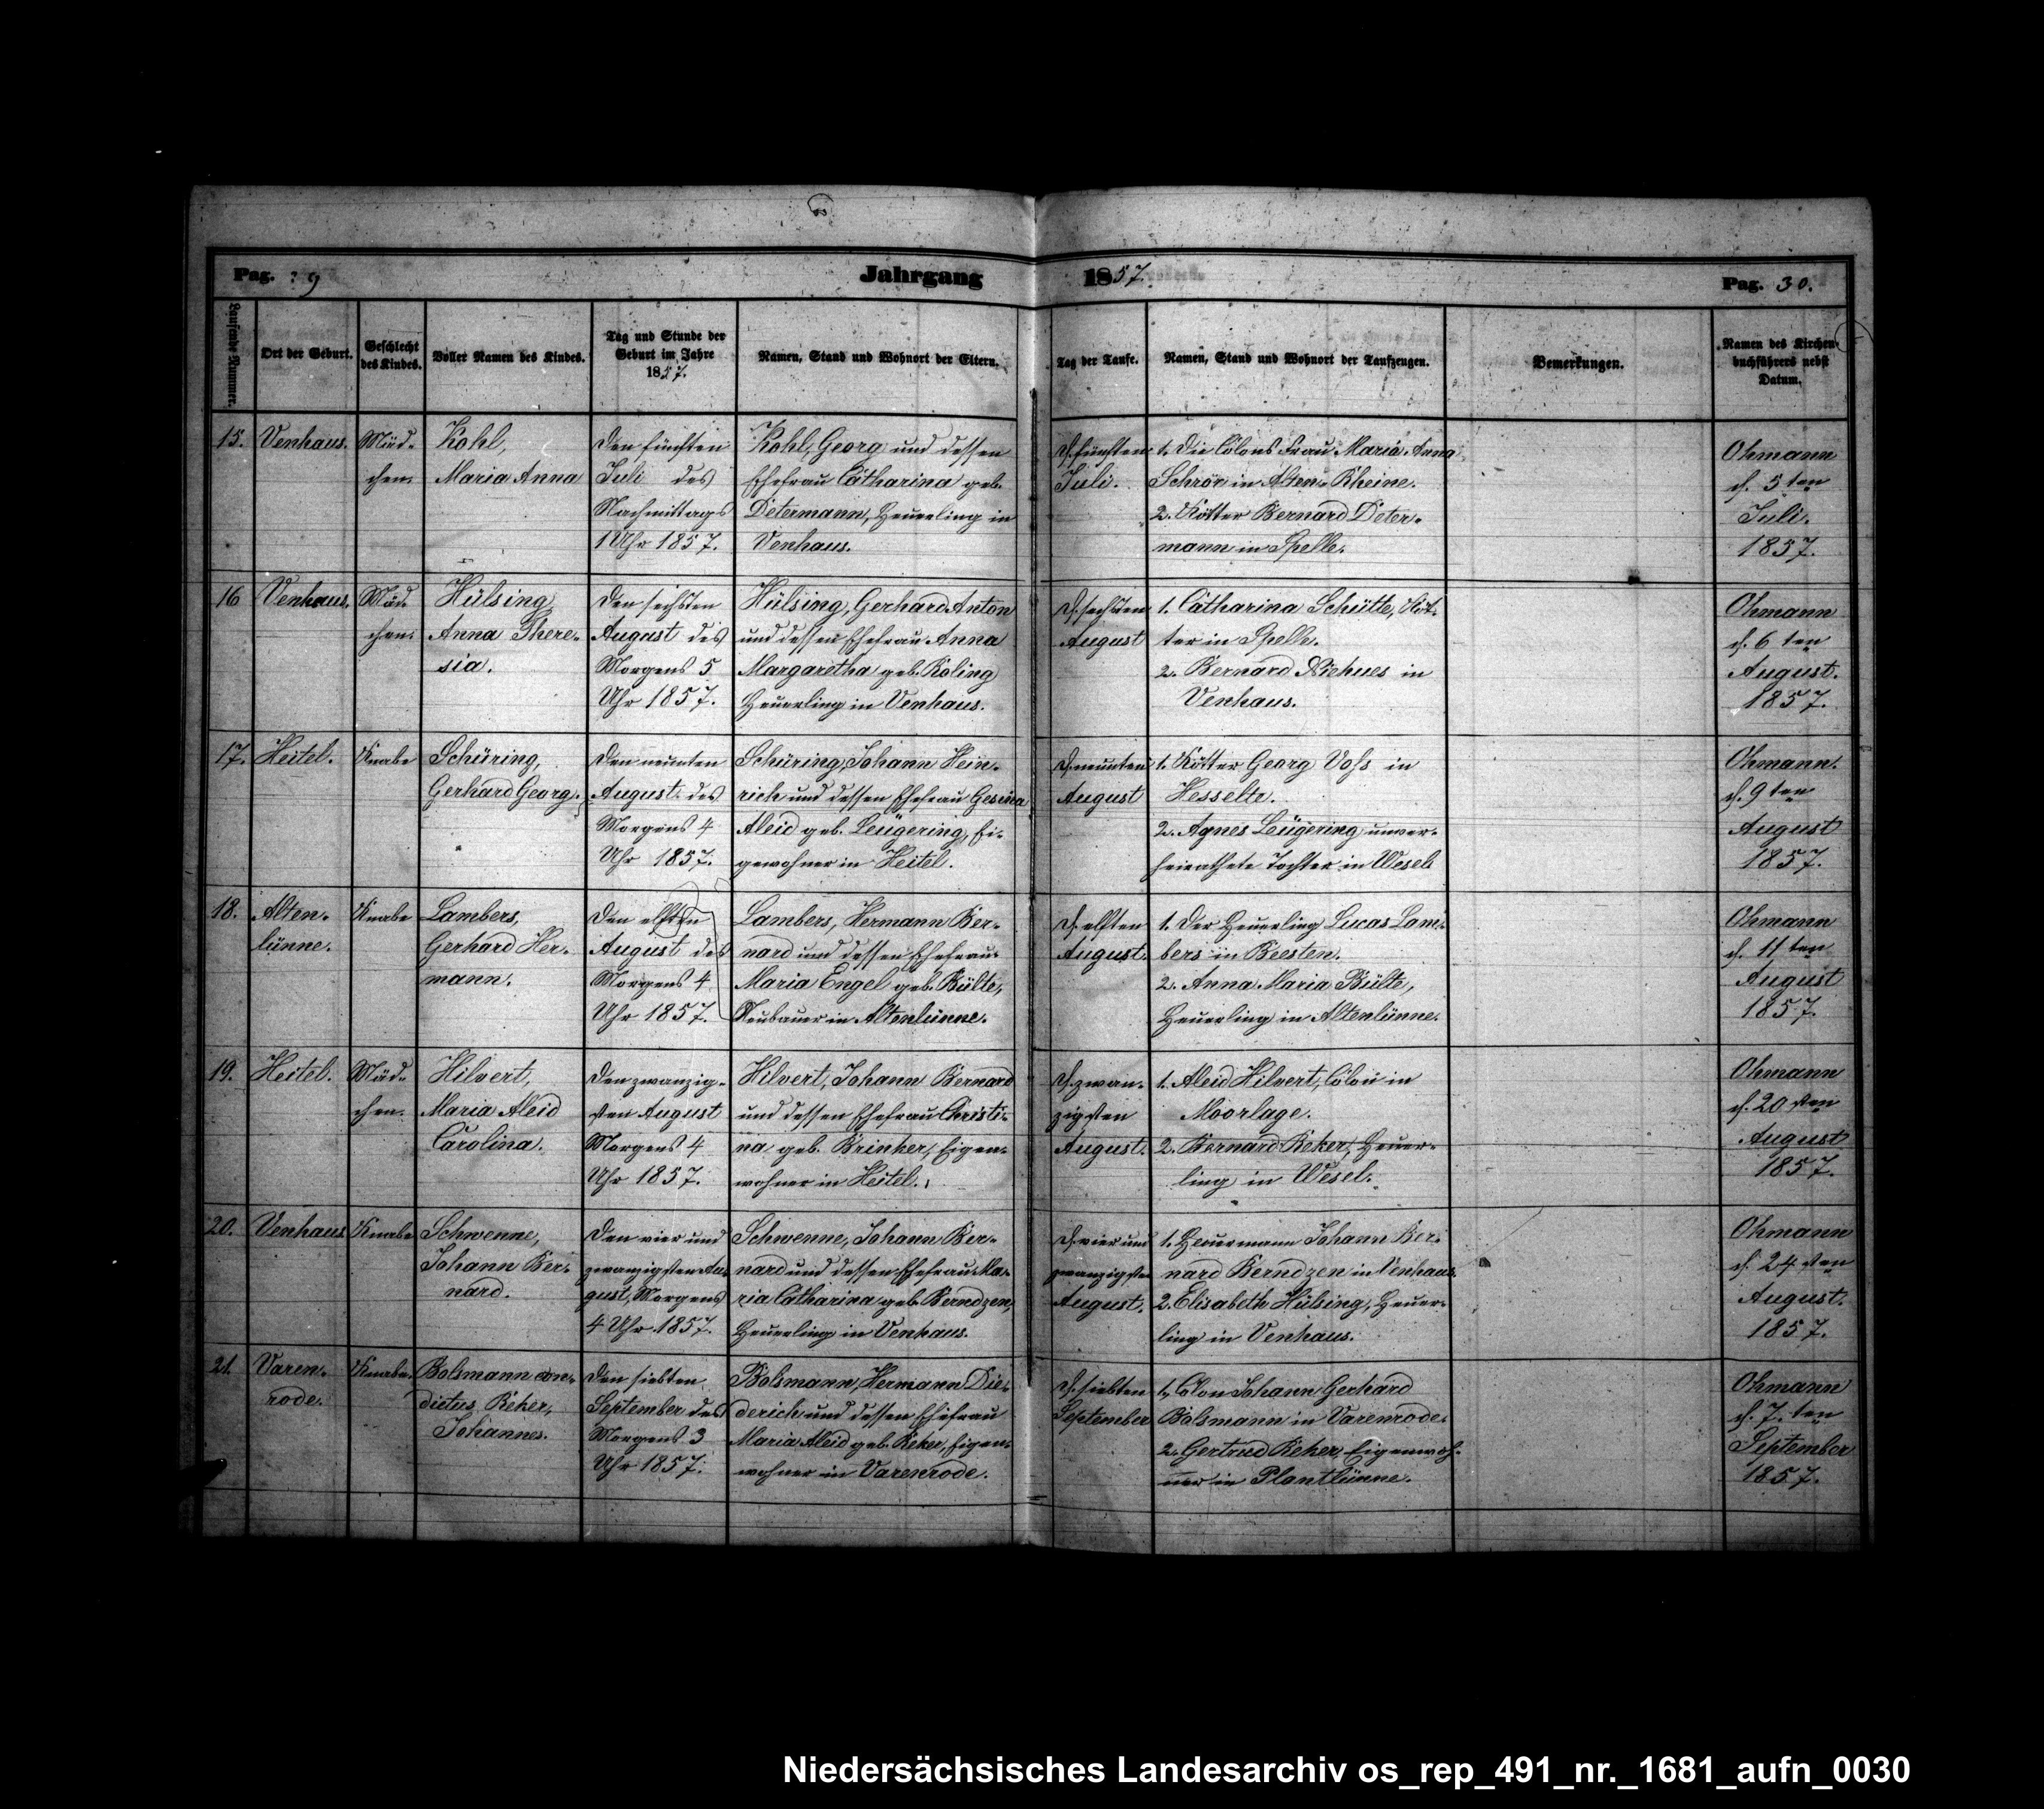 Pag. 29
Jahrgang 1857.
Pag. 30.
Laufende Nummer.
Ort der Geburt.
Geschlecht
des Kindes.
Voller Namen des Kindes.
Tag und Stunde der
Geburt im Jahre
1857.
Namen, Stand und Wohnort der Eltern.
Tag der Taufe.
Namen, Stand und Wohnort der Taufzeugen.
Bemerkungen.
Namen des Kirchen-
buchführers nebst
Datum.
15.
Venhaus.
Mäd-
chen.
Kohl,
Maria Anna
Den fünften
Juli des
Nachmittags
1 Uhr 1857.
Kohl, Georg und dessen
Ehefrau Catharina geb.
Determann, Heuerling in
Venhaus.
D. fünften
Juli.
1. Die Colons Frau Maria Anna
Schrör in Alten-Rheine.
2. Kötter Bernard Deter-
mann in Spelle.
Ohmann
d. 5 ten
Juli.
1857.
16
Venhaus.
Mäd-
chen.
Hülsing
Anna There-
sia.
Den sechsten
August des
Morgens 5
Uhr 1857.
Hülsing, Gerhard Anton
und dessen Ehefrau Anna
Margaretha geb. Roling
Heuerling in Venhaus.
D. sechsten
August
1. Catharina Schütte, Köt-
ter in Spelle.
2. Bernard Niehues in
Venhaus.
Ohmann
d. 6 ten
August.
1857.
17.
Heitel.
Knabe
Schüring,
Gerhard Georg.
Den neunten
August des
Morgens 4
Uhr 1857.
Schüring, Johann Hein-
rich und dessen Ehefrau Gesina
Aleid geb. Leügering, Ei-
gewohner in Heitel.
D. neunten
August
1. Kötter Georg Voss in
Hesselte.
2. Agnes Leügering unver-
heirathete Tochter in Wesel
Ohmann.
d. 9 ten
August
1857.
18.
Alten-
lünne.
Knabe
Lambers,
Gerhard Her-
mann.
Den elften
August des
Morgens 4
Uhr 1857.
Lambers, Hermann Ber-
nard und dessen Ehefrau
Maria Engel geb. Bülte,
Neubauer in Altenlünne.
D. elften
August.
1. Der Heuerling Lucas Lam-
bers in Beesten.
2. Anna Maria Bülte,
Heuerling in Altenlünne.
Ohmann
d. 11 ten
August
1857.
19.
Heitel.
Mäd-
chen.
Hilvert,
Maria Aleid
Carolina.
Den zwanzig-
sten August
Morgens 4
Uhr 1857.
Hilvert, Johann Bernard
und dessen Ehefrau Christi-
na geb. Brinker, Eigen-
wohner in Heitel.
D. zwan-
zigsten
August.
1. Aleid Hilvert, Colon in
Moorlage.
2. Bernard Reker, Heuer-
ling in Wesel.
Ohmann
d. 20 sten
August
1857.
20.
Venhaus
Knabe
Schwenne,
Johann Ber-
nard.
Den vier und
zwanzigsten Au-
gust, Morgens
4 Uhr 1857.
Schwenne, Johann Ber-
nard und dessen Ehefrau Ma-
ria Catharina geb. Berndzen,
Heuerling in Venhaus.
D. vier und
zwanzigsten
August.
1. Heuermann Johann Ber-
nard Berndzen in Venhaus.
2. Elisabeth Hülsing, Heuer-
ling in Venhaus.
Ohmann
d. 24 sten
August.
1857.
21.
Varen-
rode.
Knabe.
Bolsmann con-
dictus Reker,
Johannes.
Den siebten
September des
Morgens 3
Uhr 1857.
Bolsmann, Hermann Die-
derich und dessen Ehefrau
Maria Aleid geb. Reker, Eigen-
wohner in Varenrode.
D. siebten
September
1. Colon Johann Gerhard
Bolsmann in Varenrode.
2. Gertrud Reker, Eigenwoh-
ner in Plantlünne.
Ohmann
d. 7. ten
September
1857.
Niedersächsisches Landesarchiv os_rep_491_nr._1681_aufn_0030